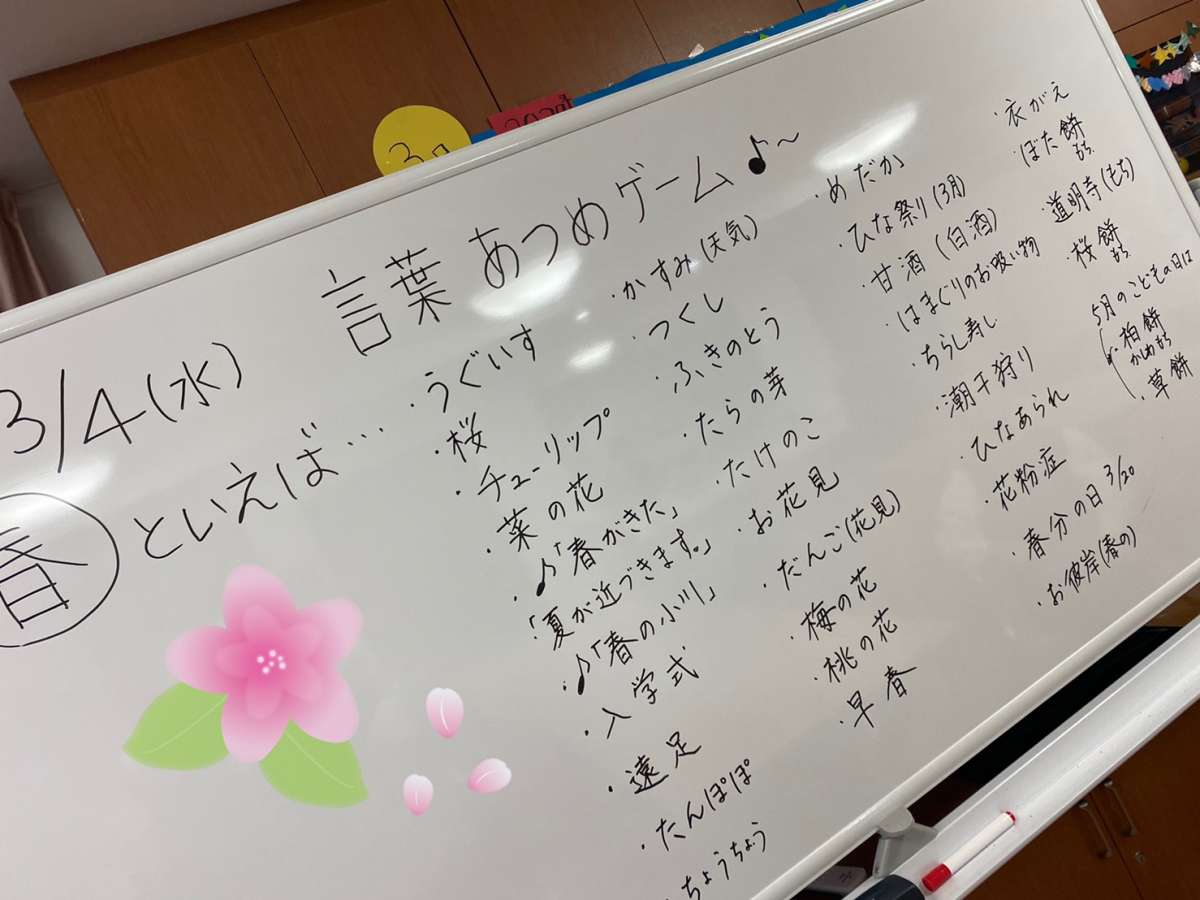 3月
言葉あつめゲーム♪〜
3/4(水)
春といえば…
・うぐいす
・桜
・チューリップ
・菜の花
・♪「春がきた」
「夏が近づきます。」
・♪「春の小川」
・入学式
・遠足
・たんぽぽ
・ちょうちょう
・かすみ(天気)
・つくし
・ふきのとう
・たらの芽
・たけのこ
・お花見
・だんご(花見)
・梅の花
・桃の花
・早春
・めだか
・ひな祭り(3月)
・甘酒(白酒)
・はまぐりのお吸い物
・ちらし寿し
・潮干狩り
・ひなあられ
・花粉症
・春分の日 3/20
・お彼岸(春の)
・衣がえ
・ぼた餅
もち
・道明寺(もち)
・桜餅
もち
5月のこどもの日は
・柏餅
かしわもち
・草餅